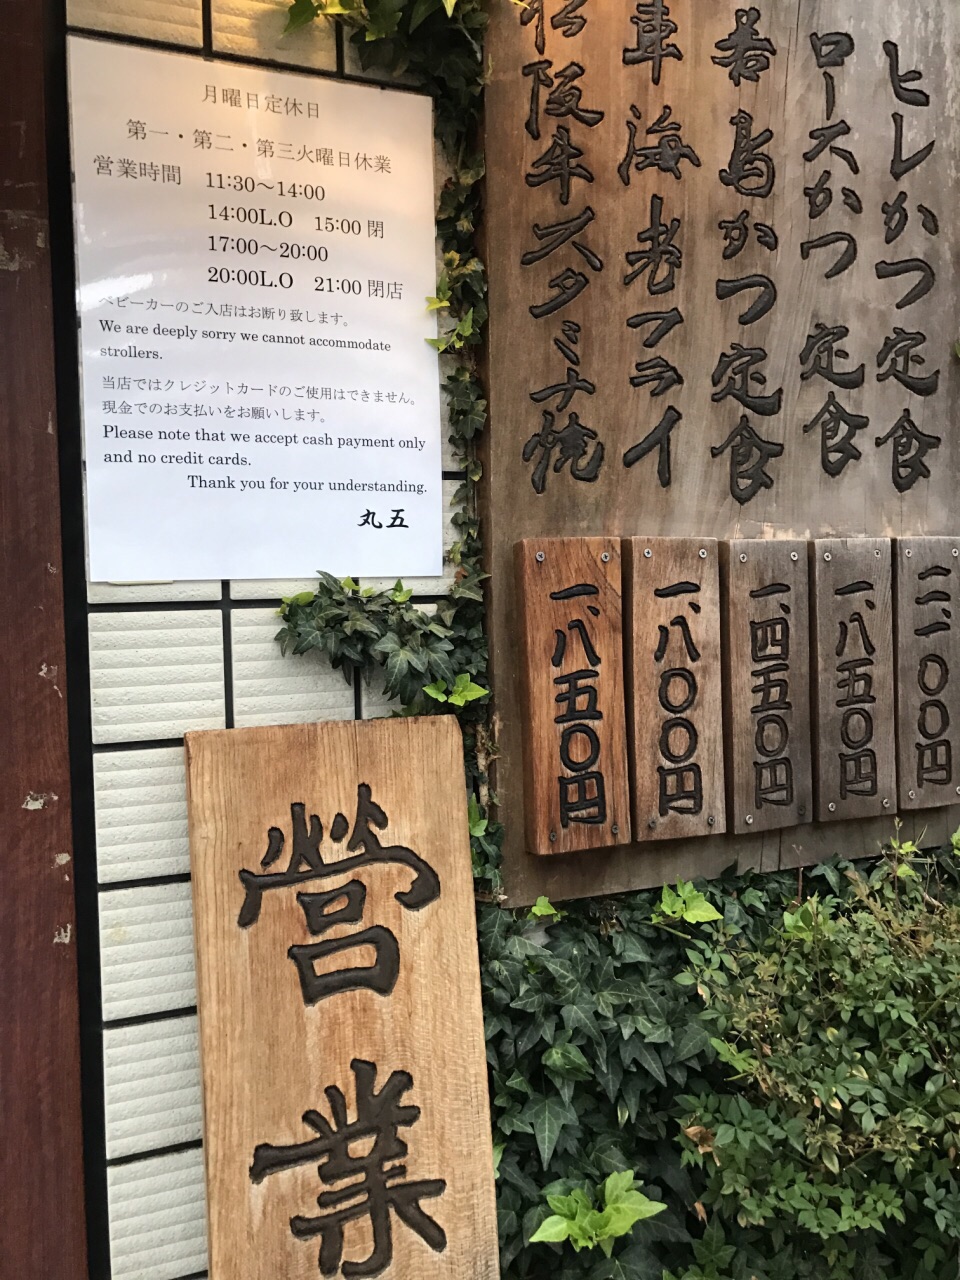 月曜日定休日
第一・第二・第三火曜日休業
営業時間 11:30～14:00
14:00L.O 15:00 閉
17:00～20:00
20:00L.O 21:00 閉店
ベビーカーのご入店はお断り致します。
We are deeply sorry we cannot accommodate
strollers.
当店ではクレジットカードのご使用はできません。
現金でのお支払いをお願いします。
Please note that we accept cash payment only
and no credit cards.
Thank you for your understanding.
丸五
ヒレかつ定食
二、一〇〇円
ロースかつ定食
一、八五〇円
若鳥かつ定食
一、四五〇円
車海老フライ
一、八〇〇円
松阪牛スタミナ焼
一、八五〇円
營業